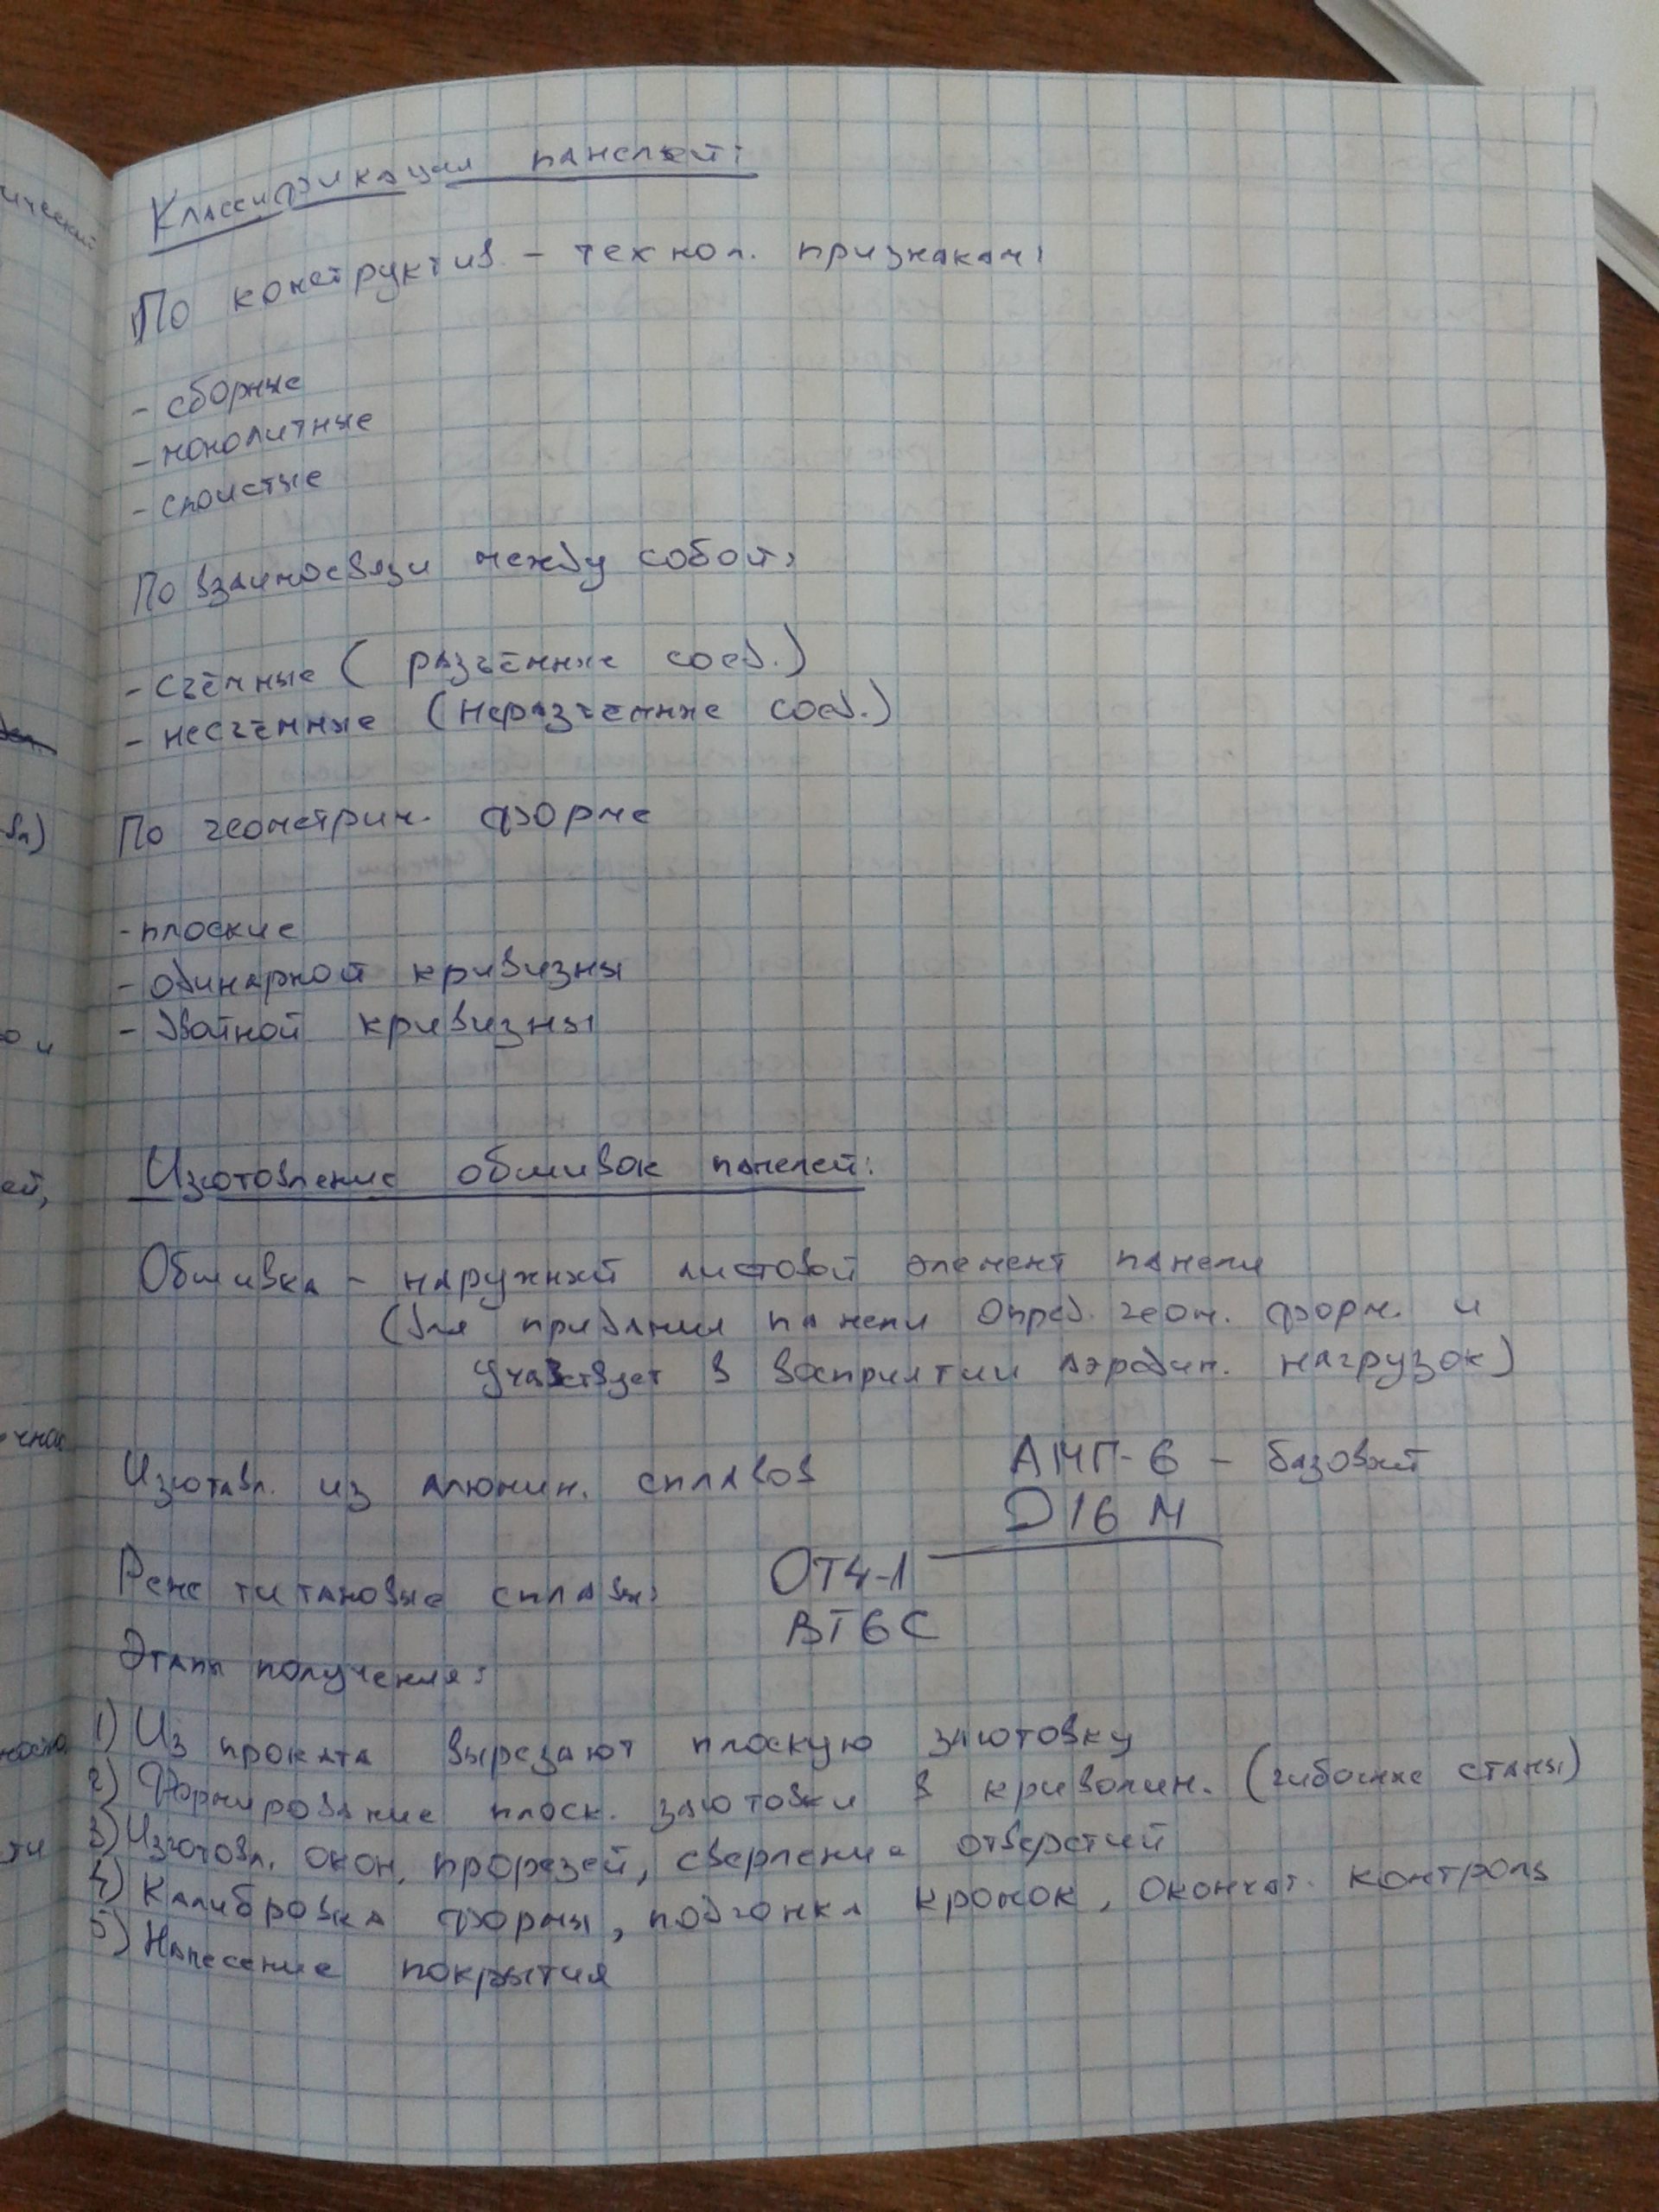 ический
Классификация панелей:
По конструктив. - технол. признакам:
- сборные
- монолитные
- слоистые
По взаимосвязи между собой:
- съёмные ( разъёмные соед.)
- несъёмные (неразъемные соед.)
По геометрич. форме
- плоские
- одинарной кривизны
- двойной кривизны
о и
Изготовление обшивок панелей:
ей,
Обшивка - наружный листовой элемент панели
(для придания панели опред. геом. форм. и
участвует в восприятии аэродин. нагрузок)
Изготавл. из алюмин. сплавов АМГ-6 - базовый
Д16 М
Реже титановые сплавы: ОТ4-1
ВТ6С
Этапы получения:
1) Из проката вырезают плоскую заготовку
2) Формирование плоск. заготовки в криволин. (гибочные станы)
3) Изготовл. окон, прорезей, сверление отверстий
ти
4) Калибровка формы, подгонка кромок, окончат. контроль
5) Нанесение покрытия